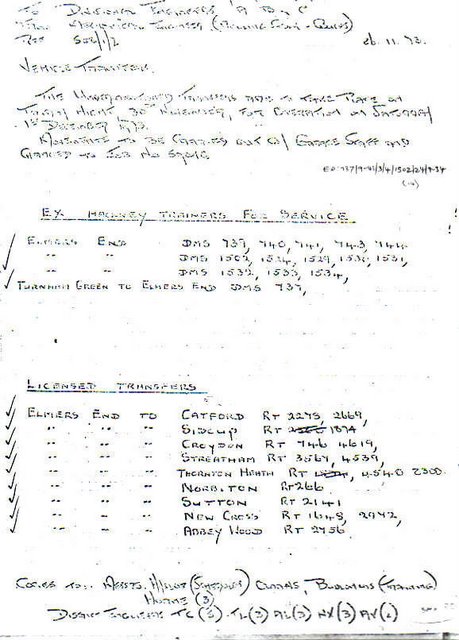 To Divisional Engineers 'A', B, C
From Mechanical Engineer (Running
Ref 502/1/2 26.11.73.
Vehicle Transfer.
The undermentioned transfers are to take place on
Friday Night 30th November, for operation on Saturday
1st December 1973.
to be carried out by Garage Staff and
charged to Job No
Ex Hackney Trainers For Service
Elmers End DMS 737, 740, 741, 743, 744
" " DMS 1502, 1524, 1529, 1530, 1531,
" " DMS 1532, 1533, 1534,
Turnham Green to Elmers End DMS 737,
Licensed Transfers
Elmers End to Catford RT 2275, 2669,
" " " Sidcup RT 1894
" " " Croydon RT 746 4619,
" " " Streatham RT 3567, 4539,
" " " Thornton Heath RT 4540 2300.
" " " Norbiton RT 266
" " " Sutton RT 2141
" " " New Cross RT 1648, 2972,
" " " Abbey Wood RT 2756
Copies to:- Claims, (Training)
(3)
District Engineers TC(3) TL(3) AL(3) NX(3)